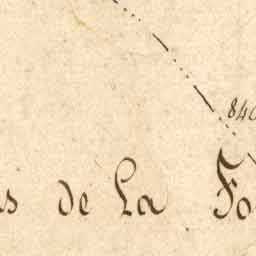 840
s de La Fo